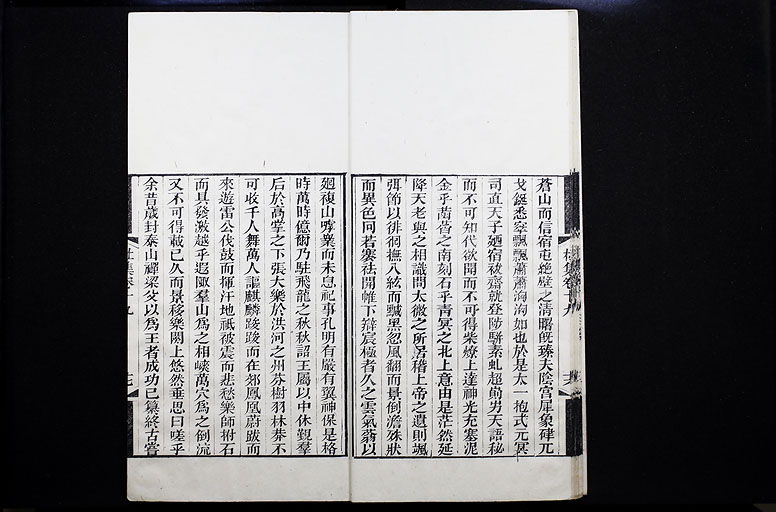 蒼山而信宿屯絶壁之清曙旣臻夫陰宮犀象硉兀
戈鋋悉窣飄飄蕭蕭洶洶如也於是太一抱式元冥
司直天子廼宿祓齋就登陟騈素虬超崱屴天語秘
而不可知代欲聞而不可得柴燎上達神光充塞泥
金乎菡萏之南刻石乎青冥之北上意由是茫然延
降天老與之相識問太微之所居稽上帝之遺則颯
弭節以徘徊撫八紘而黬黑忽風翻而景倒澹殊狀
而異色冏若褰袪開帷下辯宸極者久之雲氣蓊以
廻複山嘑業而未息祀事孔明有嚴有翼神保是格
時萬時億爾乃駐飛龍之秋秋詔王屬以中休覲羣
后於高掌之下張大樂於洪河之州芬樹羽林莽不
可收千人舞萬人謳麒麟踆踆而在郊鳳凰蔚跂而
來遊雷公伐鼓而揮汗地祇被震而悲愁樂師拊石
而具發激越乎遐陬羣山爲之相峽萬穴爲之倒流
又不可得載已久而景移樂闋上悠然垂思曰嗟乎
余昔歲封泰山禪梁父以爲王者成功已纂終古嘗
杜集卷十九